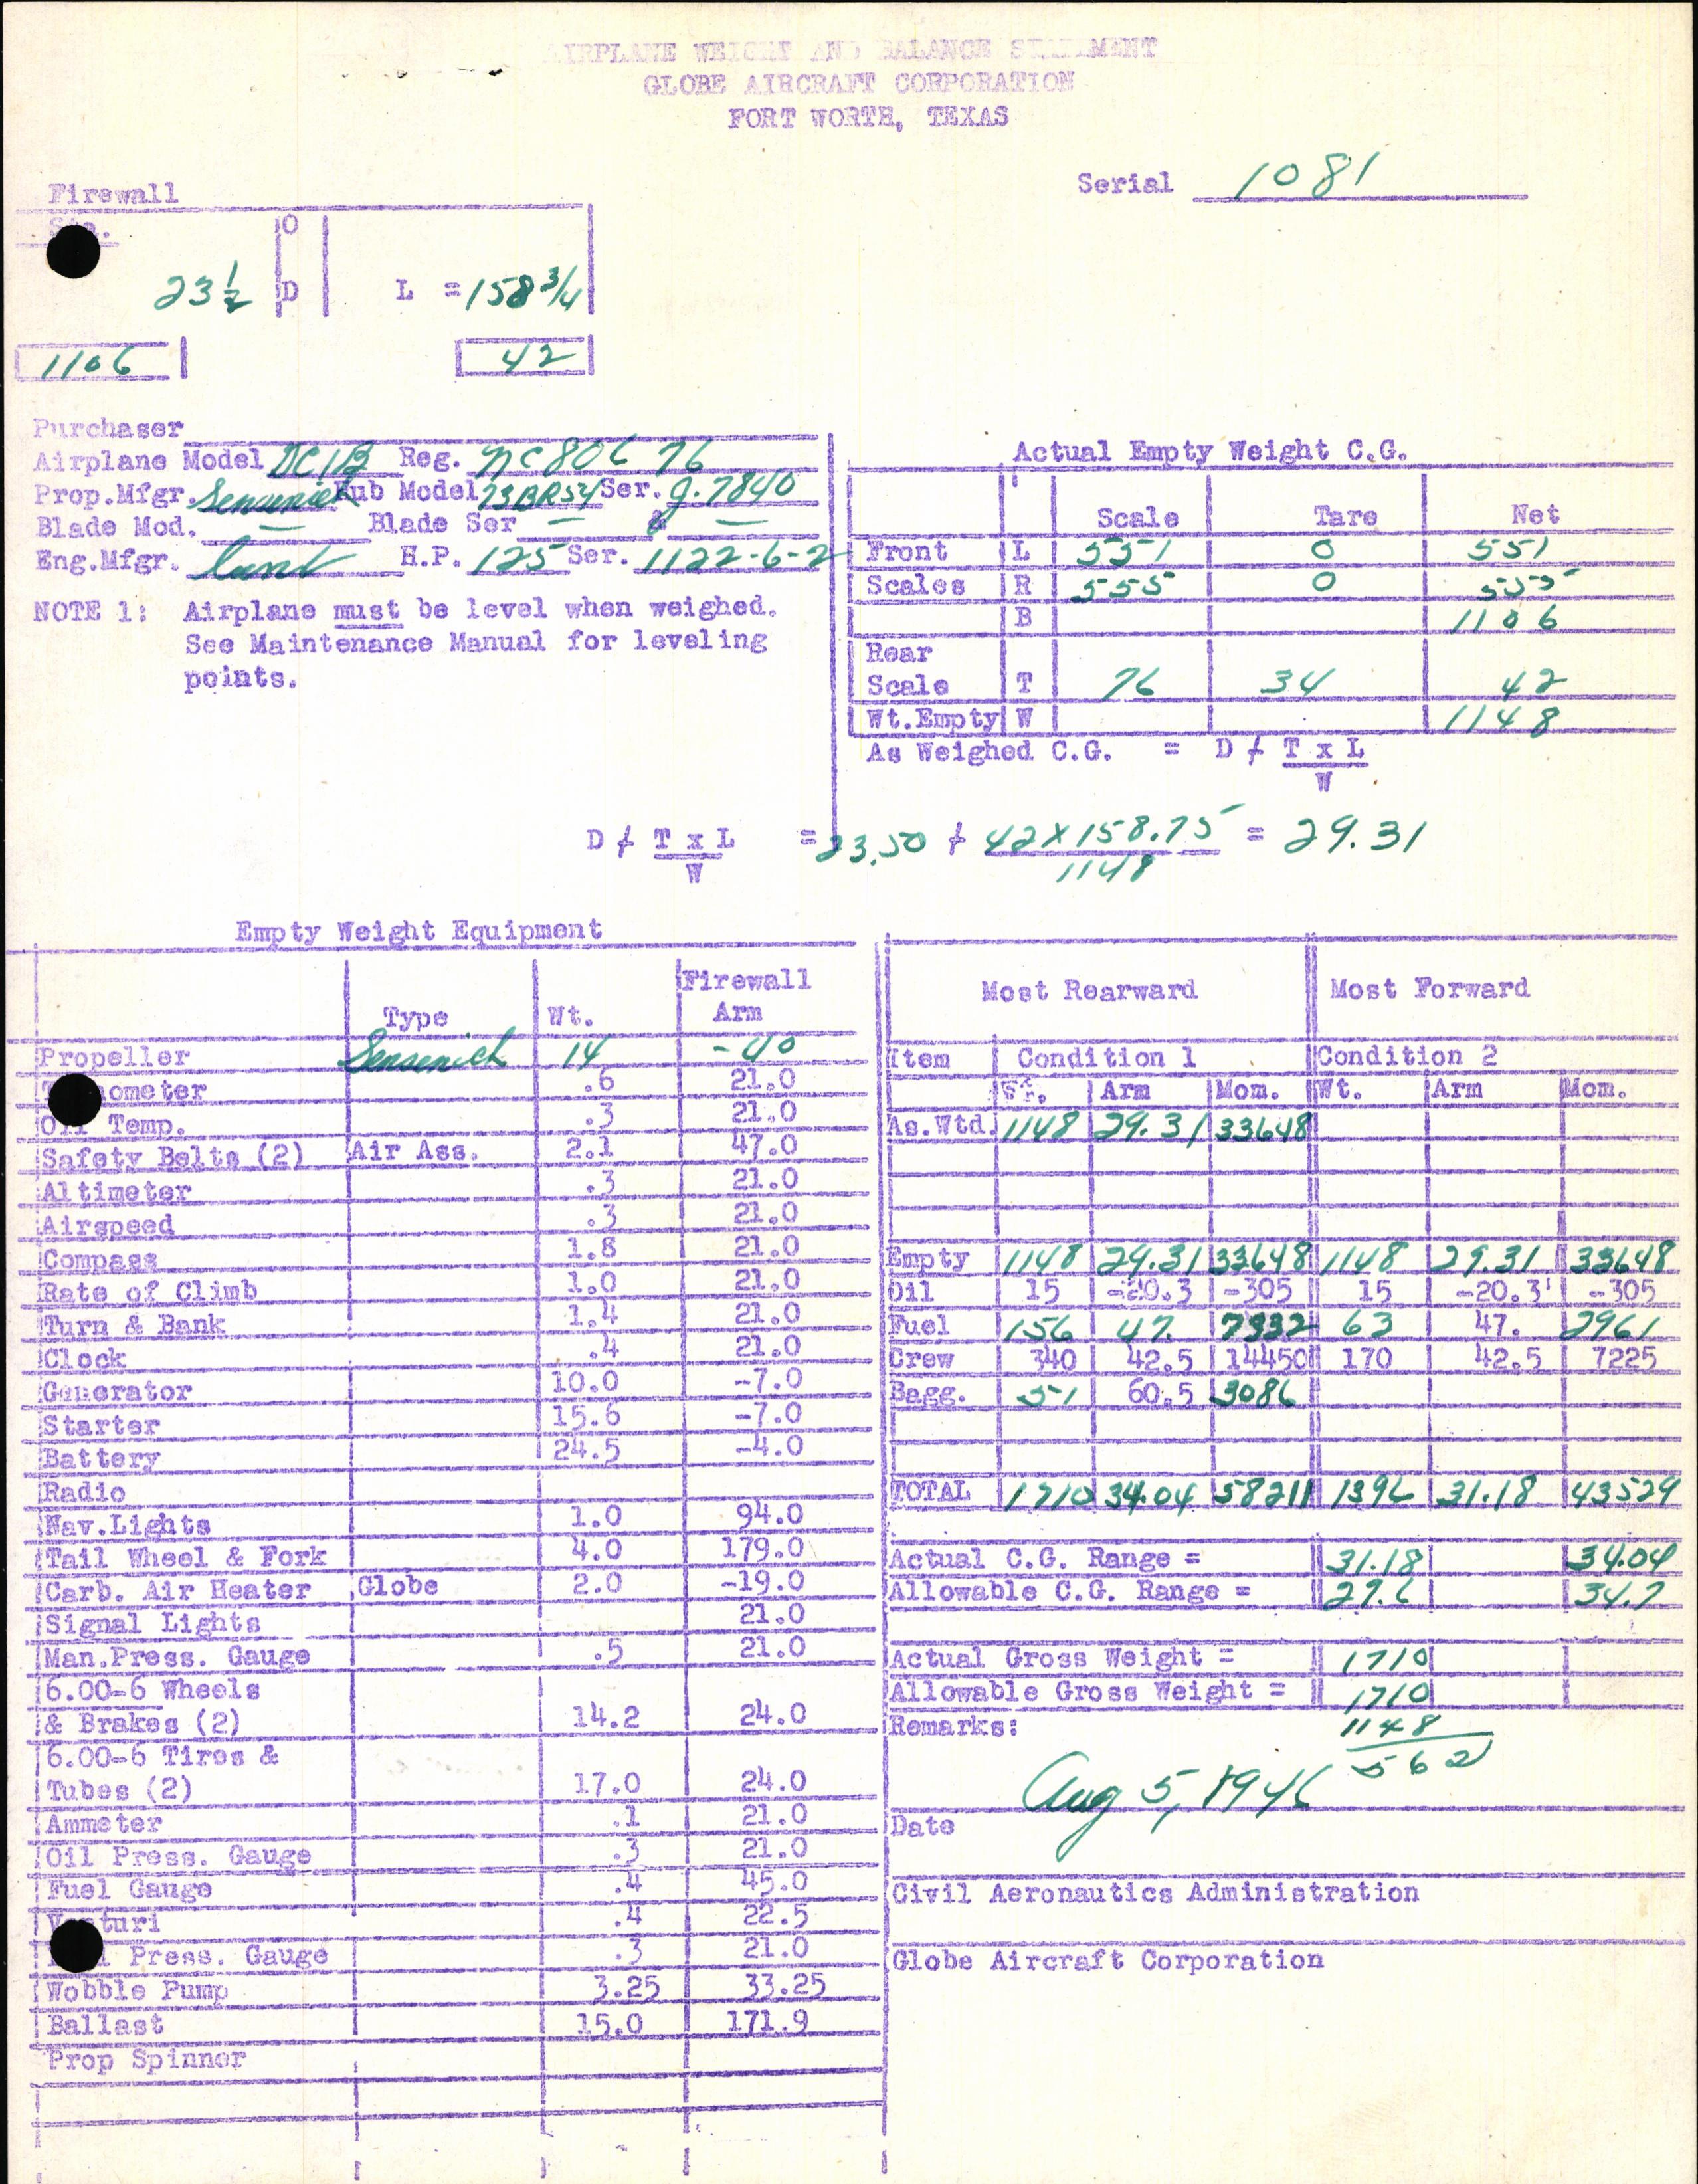 AIRPLANE WEIGHT AND BALANCE STATEMENT
GLOBE AIRCRAFT CORPORATION
FORT WORTH, TEXAS
Serial 1081
Firewall
Sta.
O
23 1/2 D L = 158 3/4
1106 42
Purchaser
Airplane Model DC1B Reg. NC 80676
Prop.Mfgr. Sensenich Hub Model 73BR54 Ser. 9.7840
Blade Mod. — Blade Ser — & —
Eng.Mfgr. Cont H.P. 125 Ser. 1122-6-2
NOTE 1: Airplane must be level when weighed.
See Maintenance Manual for leveling
points.
Actual Empty Weight C.G.
Scale Tare Net
Front L 551 0 551
Scales R 555 0 555
B 1106
Rear
Scale T 76 34 42
Wt.Empty W 1148
As Weighed C.G. = D + T x L
W
D + T x L = 23.50 + 42 x 158.75 = 29.31
W 1148
Empty Weight Equipment
Type Wt. Firewall
Arm
Propeller Sensenich 14 -40
Tachometer .6 21.0
Oil Temp. .3 21.0
Safety Belts (2) Air Ass. 2.1 47.0
Altimeter .3 21.0
Airspeed .3 21.0
Compass 1.8 21.0
Rate of Climb 1.0 21.0
Turn & Bank 1.4 21.0
Clock .4 21.0
Generator 10.0 -7.0
Starter 15.6 -7.0
Battery 24.5 -4.0
Radio
Nav.Lights 1.0 94.0
Tail Wheel & Fork 4.0 179.0
Carb. Air Heater Globe 2.0 -19.0
Signal Lights 21.0
Man.Press. Gauge .5 21.0
6.00-6 Wheels
& Brakes (2) 14.2 24.0
6.00-6 Tires &
Tubes (2) 17.0 24.0
Ammeter .1 21.0
Oil Press. Gauge .3 21.0
Fuel Gauge .4 45.0
Venturi .4 22.5
Press. Gauge .3 21.0
Wobble Pump 3.25 33.25
Ballast 15.0 171.9
Prop Spinner
Most Rearward Most Forward
Item Condition 1 Condition 2
Wt. Arm Mom. Wt. Arm Mom.
As.Wtd. 1148 29.31 33648
Empty 1148 29.31 33648 1148 29.31 33648
Oil 15 -20.3 -305 15 -20.3 -305
Fuel 156 47. 7332 63 47. 2961
Crew 340 42.5 14450 170 42.5 7225
Bagg. 51 60.5 3086
TOTAL 1710 34.04 58211 1396 31.18 43529
Actual C.G. Range = 31.18 34.04
Allowable C.G. Range = 27.6 34.7
Actual Gross Weight = 1710
Allowable Gross Weight = 1710
Remarks: 1148
562
Aug 5, 1946
Date
Civil Aeronautics Administration
Globe Aircraft Corporation